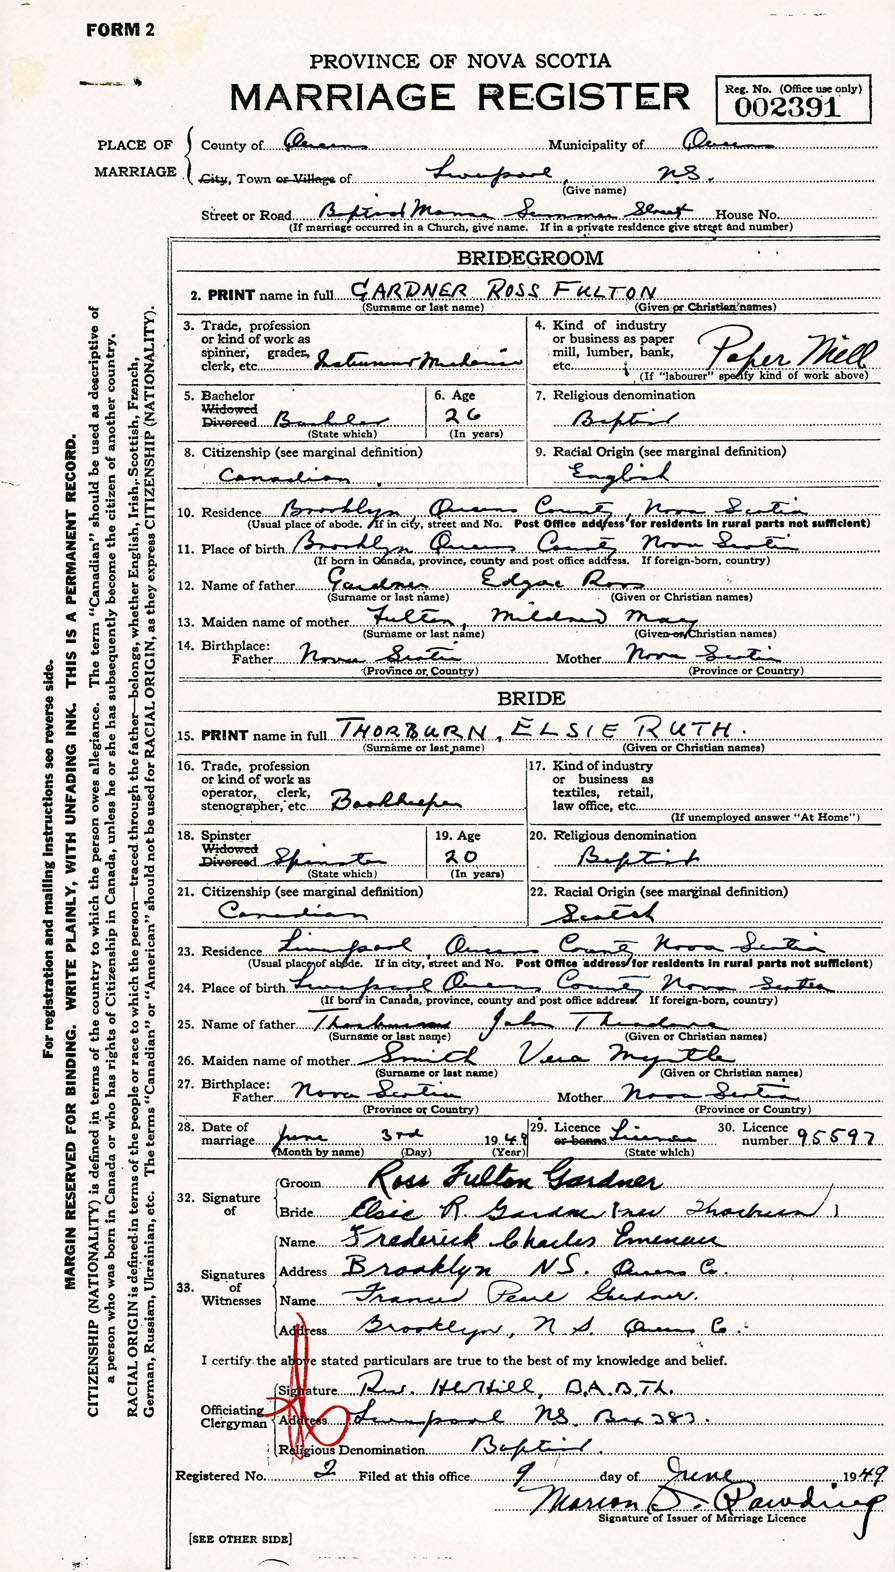 FORM 2
PROVINCE OF NOVA SCOTIA
MARRIAGE REGISTER
Reg. No. (Office use only)
002391
PLACE OF MARRIAGE
County of Queens Municipality of Queens
City, Town or Village of Liverpool, NS.
(Give name)
Street or Road Baptist Manse Summer Street House No.
(If marriage occurred in a Church, give name. If in a private residence give street and number)
BRIDEGROOM
2. PRINT name in full GARDNER ROSS FULTON
(Surname or last name) (Given or Christian names)
3. Trade, profession
or kind of work as
spinner, grader,
clerk, etc. Instrument Mechanic
4. Kind of industry
or business as paper
mill, lumber, bank,
etc. Paper Mill
(If "labourer" specify kind of work above)
5. Bachelor
Widowed
Divorced Bachelor
(State which)
6. Age
26
(In years)
7. Religious denomination
Baptist
8. Citizenship (see marginal definition)
Canadian
9. Racial Origin (see marginal definition)
English
10. Residence Brooklyn, Queens County, Nova Scotia
(Usual place of abode. If in city, street and No. Post Office address for residents in rural parts not sufficient)
11. Place of birth Brooklyn Queens County Nova Scotia
(If born in Canada, province, county and post office address. If foreign-born, country)
12. Name of father Gardner Edgar Ross
(Surname or last name) (Given or Christian names)
13. Maiden name of mother Fulton, Mildred May
(Surname or last name) (Given or Christian names)
14. Birthplace:
Father Nova Scotia Mother Nova Scotia
(Province or Country) (Province or Country)
BRIDE
15. PRINT name in full THORBURN, ELSIE RUTH.
(Surname or last name) (Given or Christian names)
16. Trade, profession
or kind of work as
operator, clerk,
stenographer, etc. Bookkeeper
17. Kind of industry
or business as
textiles, retail,
law office, etc.
(If unemployed answer "At Home")
18. Spinster
Widowed
Divorced Spinster
(State which)
19. Age
20
(In years)
20. Religious denomination
Baptist
21. Citizenship (see marginal definition)
Canadian
22. Racial Origin (see marginal definition)
Scotch
23. Residence Liverpool, Queens County Nova Scotia
(Usual place of abode. If in city, street and No. Post Office address for residents in rural parts not sufficient)
24. Place of birth Liverpool Queens County Nova Scotia
(If born in Canada, province, county and post office address. If foreign-born, country)
25. Name of father Thorburn John Theodore
(Surname or last name) (Given or Christian names)
26. Maiden name of mother Smith Vera Myrtle
(Surname or last name) (Given or Christian names)
27. Birthplace:
Father Nova Scotia Mother Nova Scotia
(Province or Country) (Province or Country)
28. Date of
marriage June 3rd 1949
(Month by name) (Day) (Year)
29. Licence
or banns Licence
(State which)
30. Licence
number 95597
32. Signature of
Groom Ross Fulton Gardner
Bride Elsie R. Gardner (nee Thorburn)
33. Signatures of Witnesses
Name Frederick Charles Emenau
Address Brooklyn NS. Queens Co.
Name Frances Pearl Gardner.
Address Brooklyn, N.S. Queens Co.
I certify the above stated particulars are true to the best of my knowledge and belief.
Officiating Clergyman
Signature Rev. H. Hill, B.A.B.Th.
Address Liverpool NS. Box 383.
Religious Denomination Baptist.
Registered No. 2 Filed at this office 9 day of June 1949
Marion
Signature of Issuer of Marriage Licence
[SEE OTHER SIDE]
For registration and mailing instructions see reverse side.
MARGIN RESERVED FOR BINDING. WRITE PLAINLY, WITH UNFADING INK. THIS IS A PERMANENT RECORD.
CITIZENSHIP (NATIONALITY) is defined in terms of the country to which the person owes allegiance. The term "Canadian" should be used as descriptive of
a person who was born in Canada or who has rights of Citizenship in Canada, unless he or she has subsequently become the citizen of another country.
RACIAL ORIGIN is defined in terms of the people or race to which the person—traced through the father—belongs, whether English, Irish, Scottish, French,
German, Russian, Ukrainian, etc. The terms "Canadian" or "American" should not be used for RACIAL ORIGIN, as they express CITIZENSHIP (NATIONALITY).